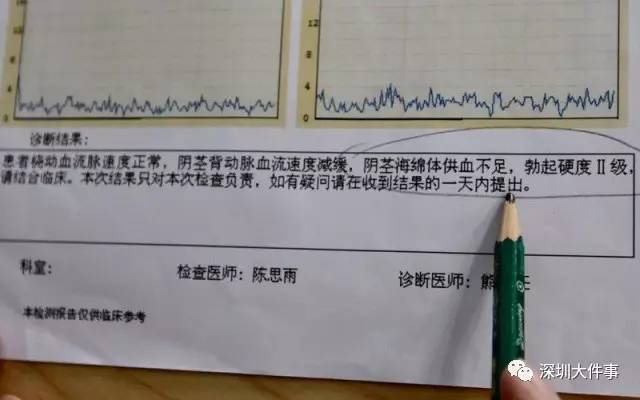 12 12
8 8
4 4
0 0
诊断结果：
患者桡动血流脉速度正常，阴茎背动脉血流速度减缓，阴茎海绵体供血不足，勃起硬度Ⅱ级，
请结合临床。本次结果只对本次检查负责，如有疑问请在收到结果的一天内提出。
科室： 检查医师：陈思雨 诊断医师：熊
本检测报告仅供临床参考
深圳大件事